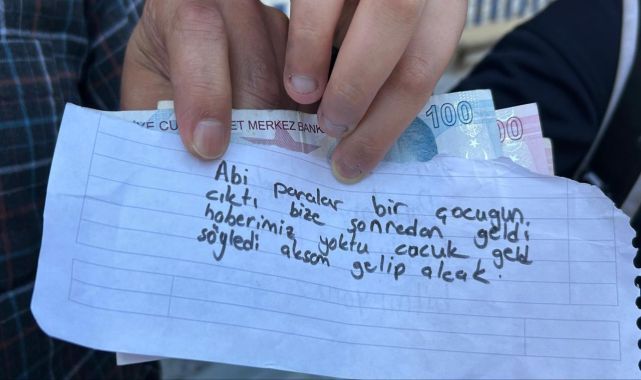 YE CU ET MERKEZ BANK
100
00
Abi paralar bir çocuğun
cıktı bize sonredan geldi
haberimiz yoktu cocuk geld
söyledi aksam gelip alcak.